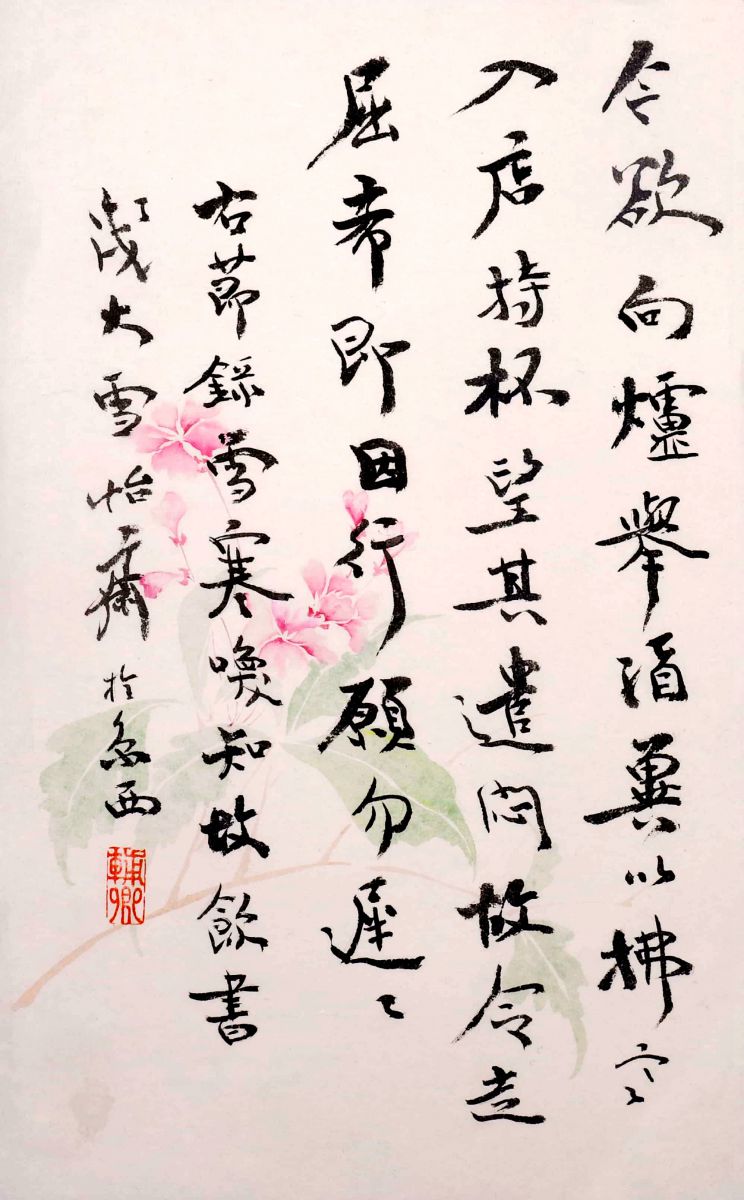 今欲向爐舉酒冀以拂寒
入店持杯望其遣悶故令走
屈希即因行願勿遲〻
右節錄雪寒喚知故飲書
大雪怡齋於西
輔卿